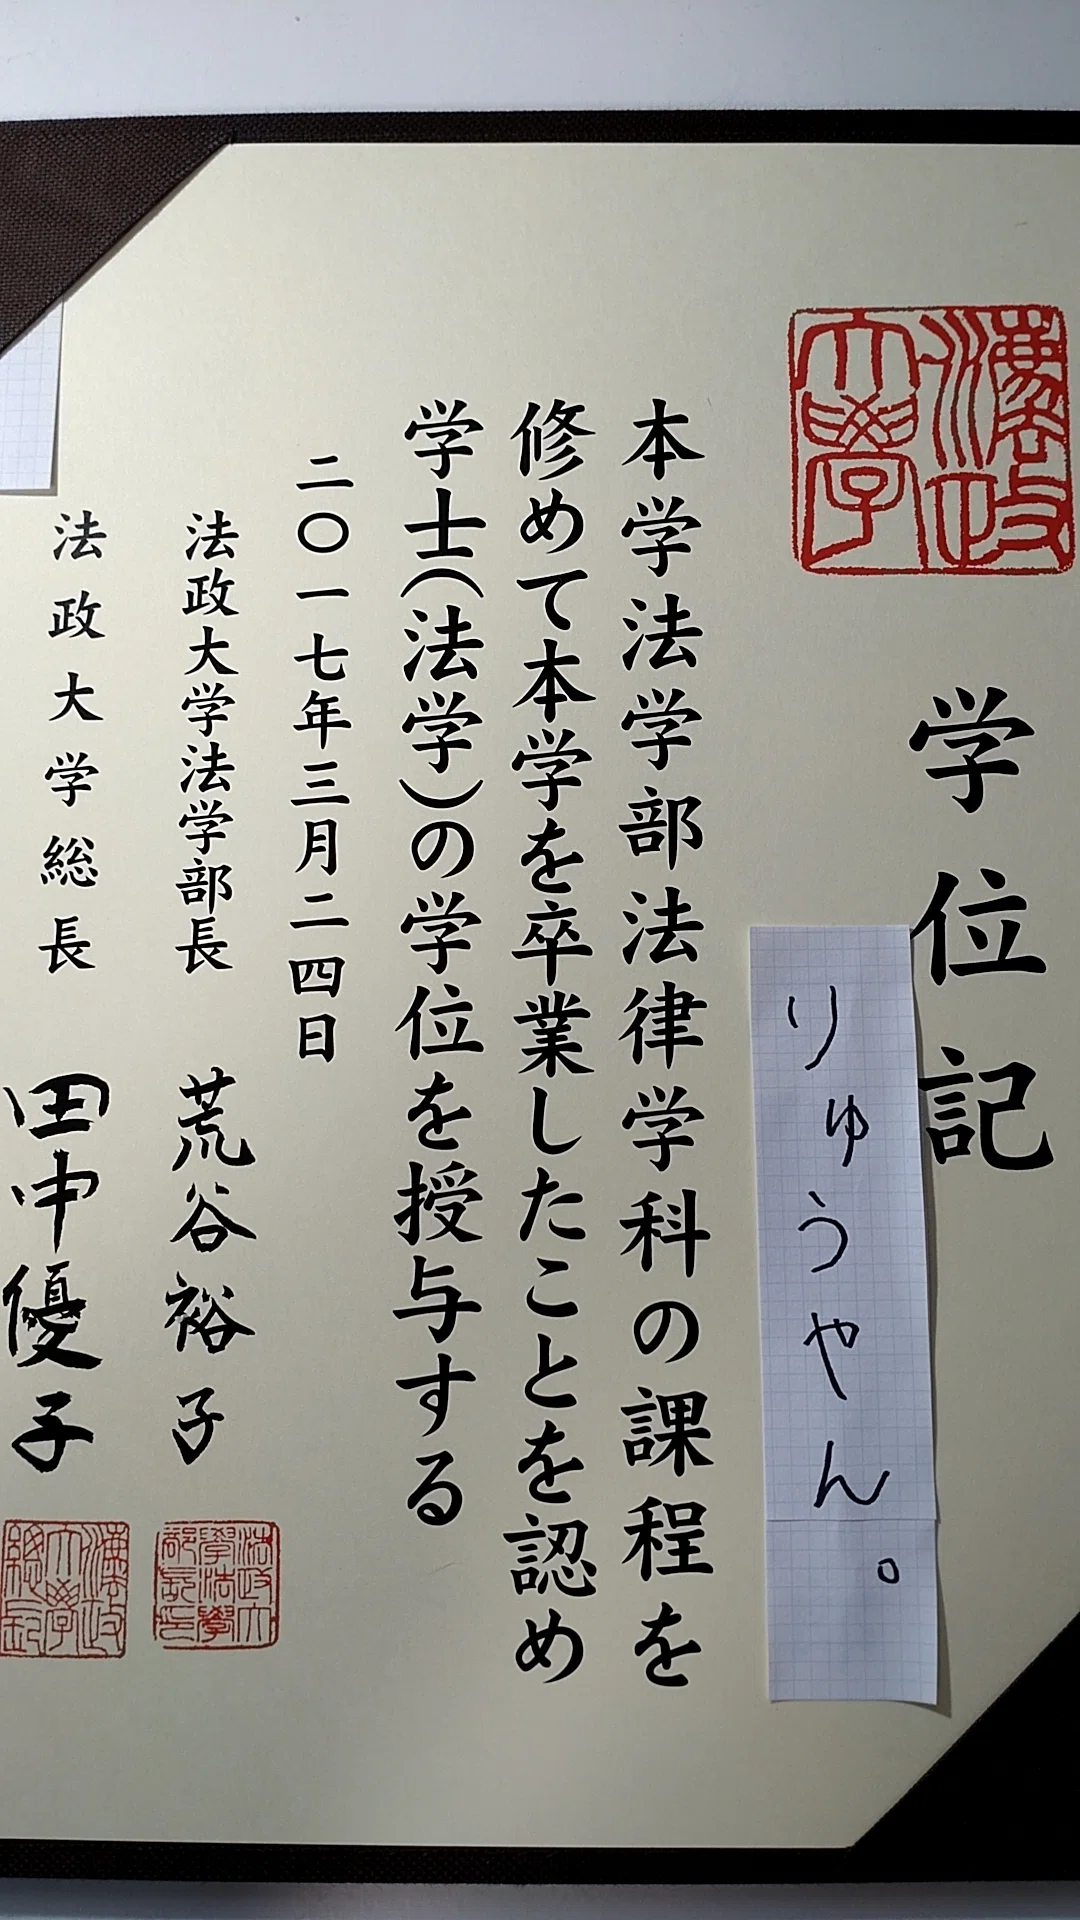 学位記
りゅうやん。
本学法学部法律学科の課程を
修めて本学を卒業したことを認め
学士(法学)の学位を授与する
二〇一七年三月二四日
法政大学法学部長 荒谷裕子
法政大学総長 田中優子